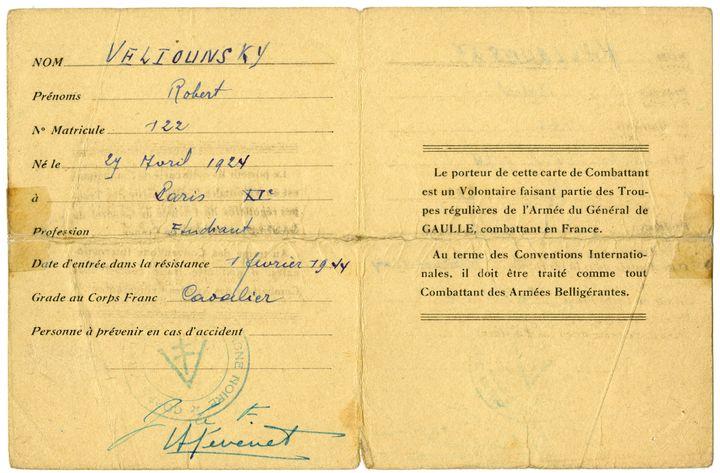 NOM VELIOUNSKY
Prénoms Robert
Nº Matricule 122
Né le 27 Avril 1924
à Paris XIe
Profession Etudiant
Date d'entrée dans la résistance 1 février 1944
Grade au Corps Franc Cavalier
Personne à prévenir en cas d'accident
GNE NOIRE
Le porteur de cette carte de Combattant
est un Volontaire faisant partie des Trou-
pes régulières de l'Armée du Général de
GAULLE, combattant en France.
Au terme des Conventions Internatio-
nales, il doit être traité comme tout
Combattant des Armées Belligérantes.